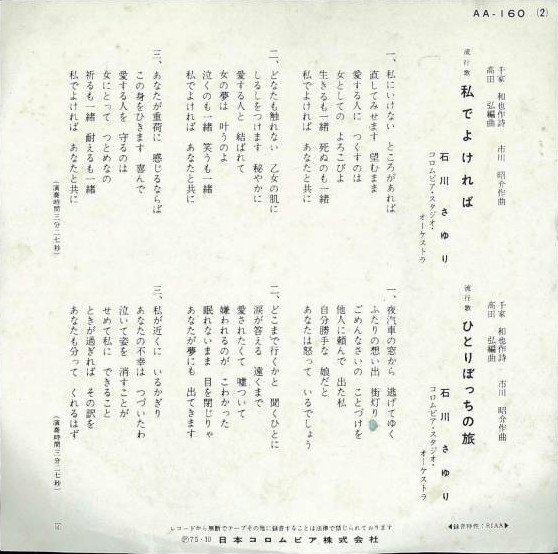 AA-160 (2)
千家 和也作詩 市川 昭介作曲
高田 弘編曲
流行歌 私でよければ
石川さゆり
コロムビア・スタジオ・オーケストラ
一、私にいけない ところがあれば
直してみせます 望むまま
愛する人に つくすのは
女としての よろこびよ
生きるも一緒 死ぬのも一緒
私でよければ あなたと共に
二、どなたも触れない 乙女の肌に
しるしをつけます 秘やかに
愛する人と 結ばれて
女の夢は 叶うのよ
泣くのも一緒 笑うも一緒
私でよければ あなたと共に
三、あなたが重荷に 感じるならば
この身をひきます 喜んで
愛する人を 守るのは
女にとって つとめなの
祈るも一緒 耐えるも一緒
私でよければ あなたと共に
(演奏時間三分二七秒)
千家 和也作詩 市川 昭介作曲
高田 弘編曲
流行歌 ひとりぼっちの旅
石川さゆり
コロムビア・スタジオ・オーケストラ
一、夜汽車の窓から 逃げてゆく
ふたりの想い出 街灯り
ごめんなさいの ことづけを
他人に頼んで 出た私
自分勝手な 娘だと
あなたは怒って いるでしょう
二、どこまで行くかと 聞くひとに
涙が答える 遠くまで
愛されたくて 嘘ついて
嫌われるのが こわかった
眠れないまま 目を閉じりゃ
あなたが夢にも 出てきます
三、私が近くに いるかぎり
あなたの不幸は つづいたわ
泣いて姿を 消すことが
せめて私に できること
ときが過ぎれば その訳を
あなたも分って くれるはず
(演奏時間三分二七秒)
レコードから無断でテープその他に録音することは法律で禁じられております
Ⓟ75・10 日本コロムビア株式会社
◀録音特性:RIAA▶